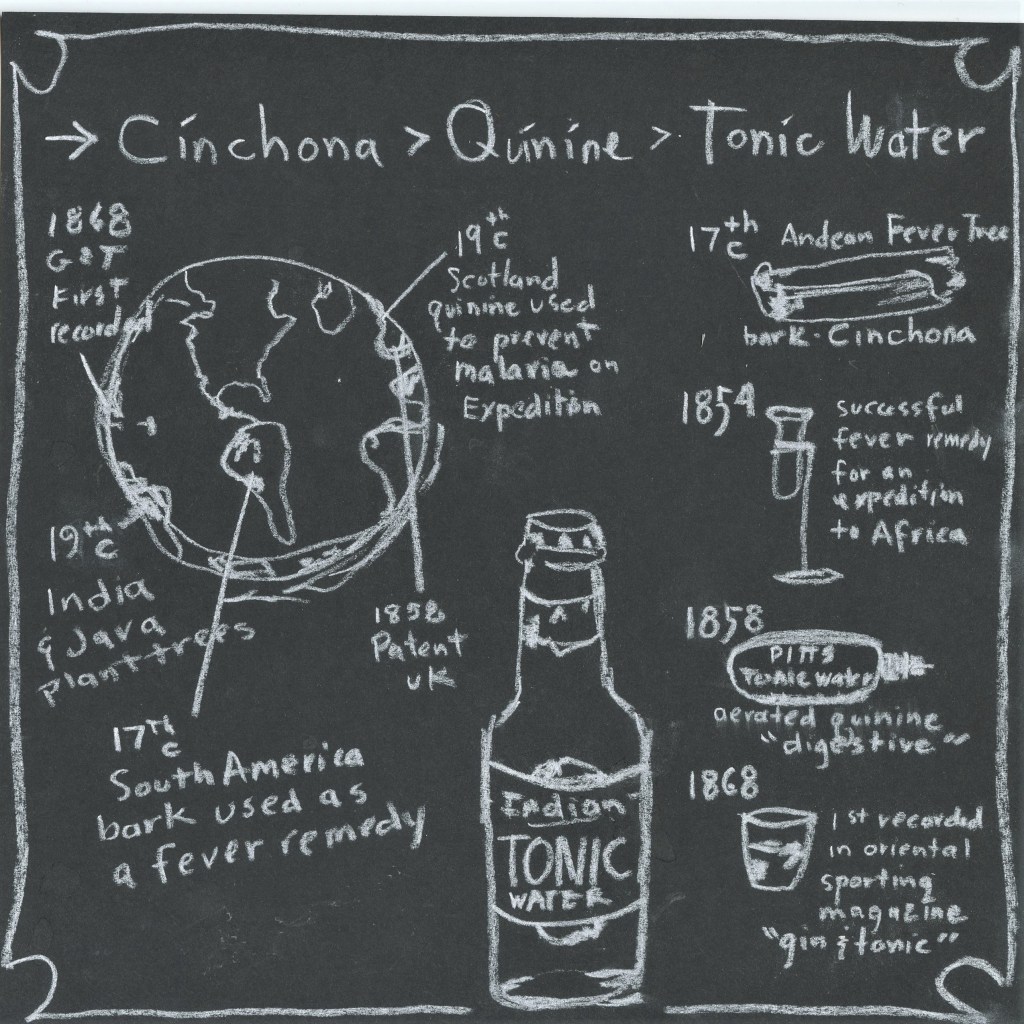 → Cinchona > Quinine > Tonic Water
1868
G&T
First
recorded
19th c
Scotland
quinine used
to prevent
malaria on
Expedition
19th c
India
& Java
plant trees
1858
Patent
UK
17th c
South America
bark used as
a fever remedy
Indian
TONIC
WATER
17th c Andean Fever Tree
bark - Cinchona
1854
successful
fever remedy
for an
expedition
to Africa
1858
PITTS
Tonic water
aerated quinine
"digestive"
1868
1st recorded
in oriental
sporting
magazine
"gin & tonic"